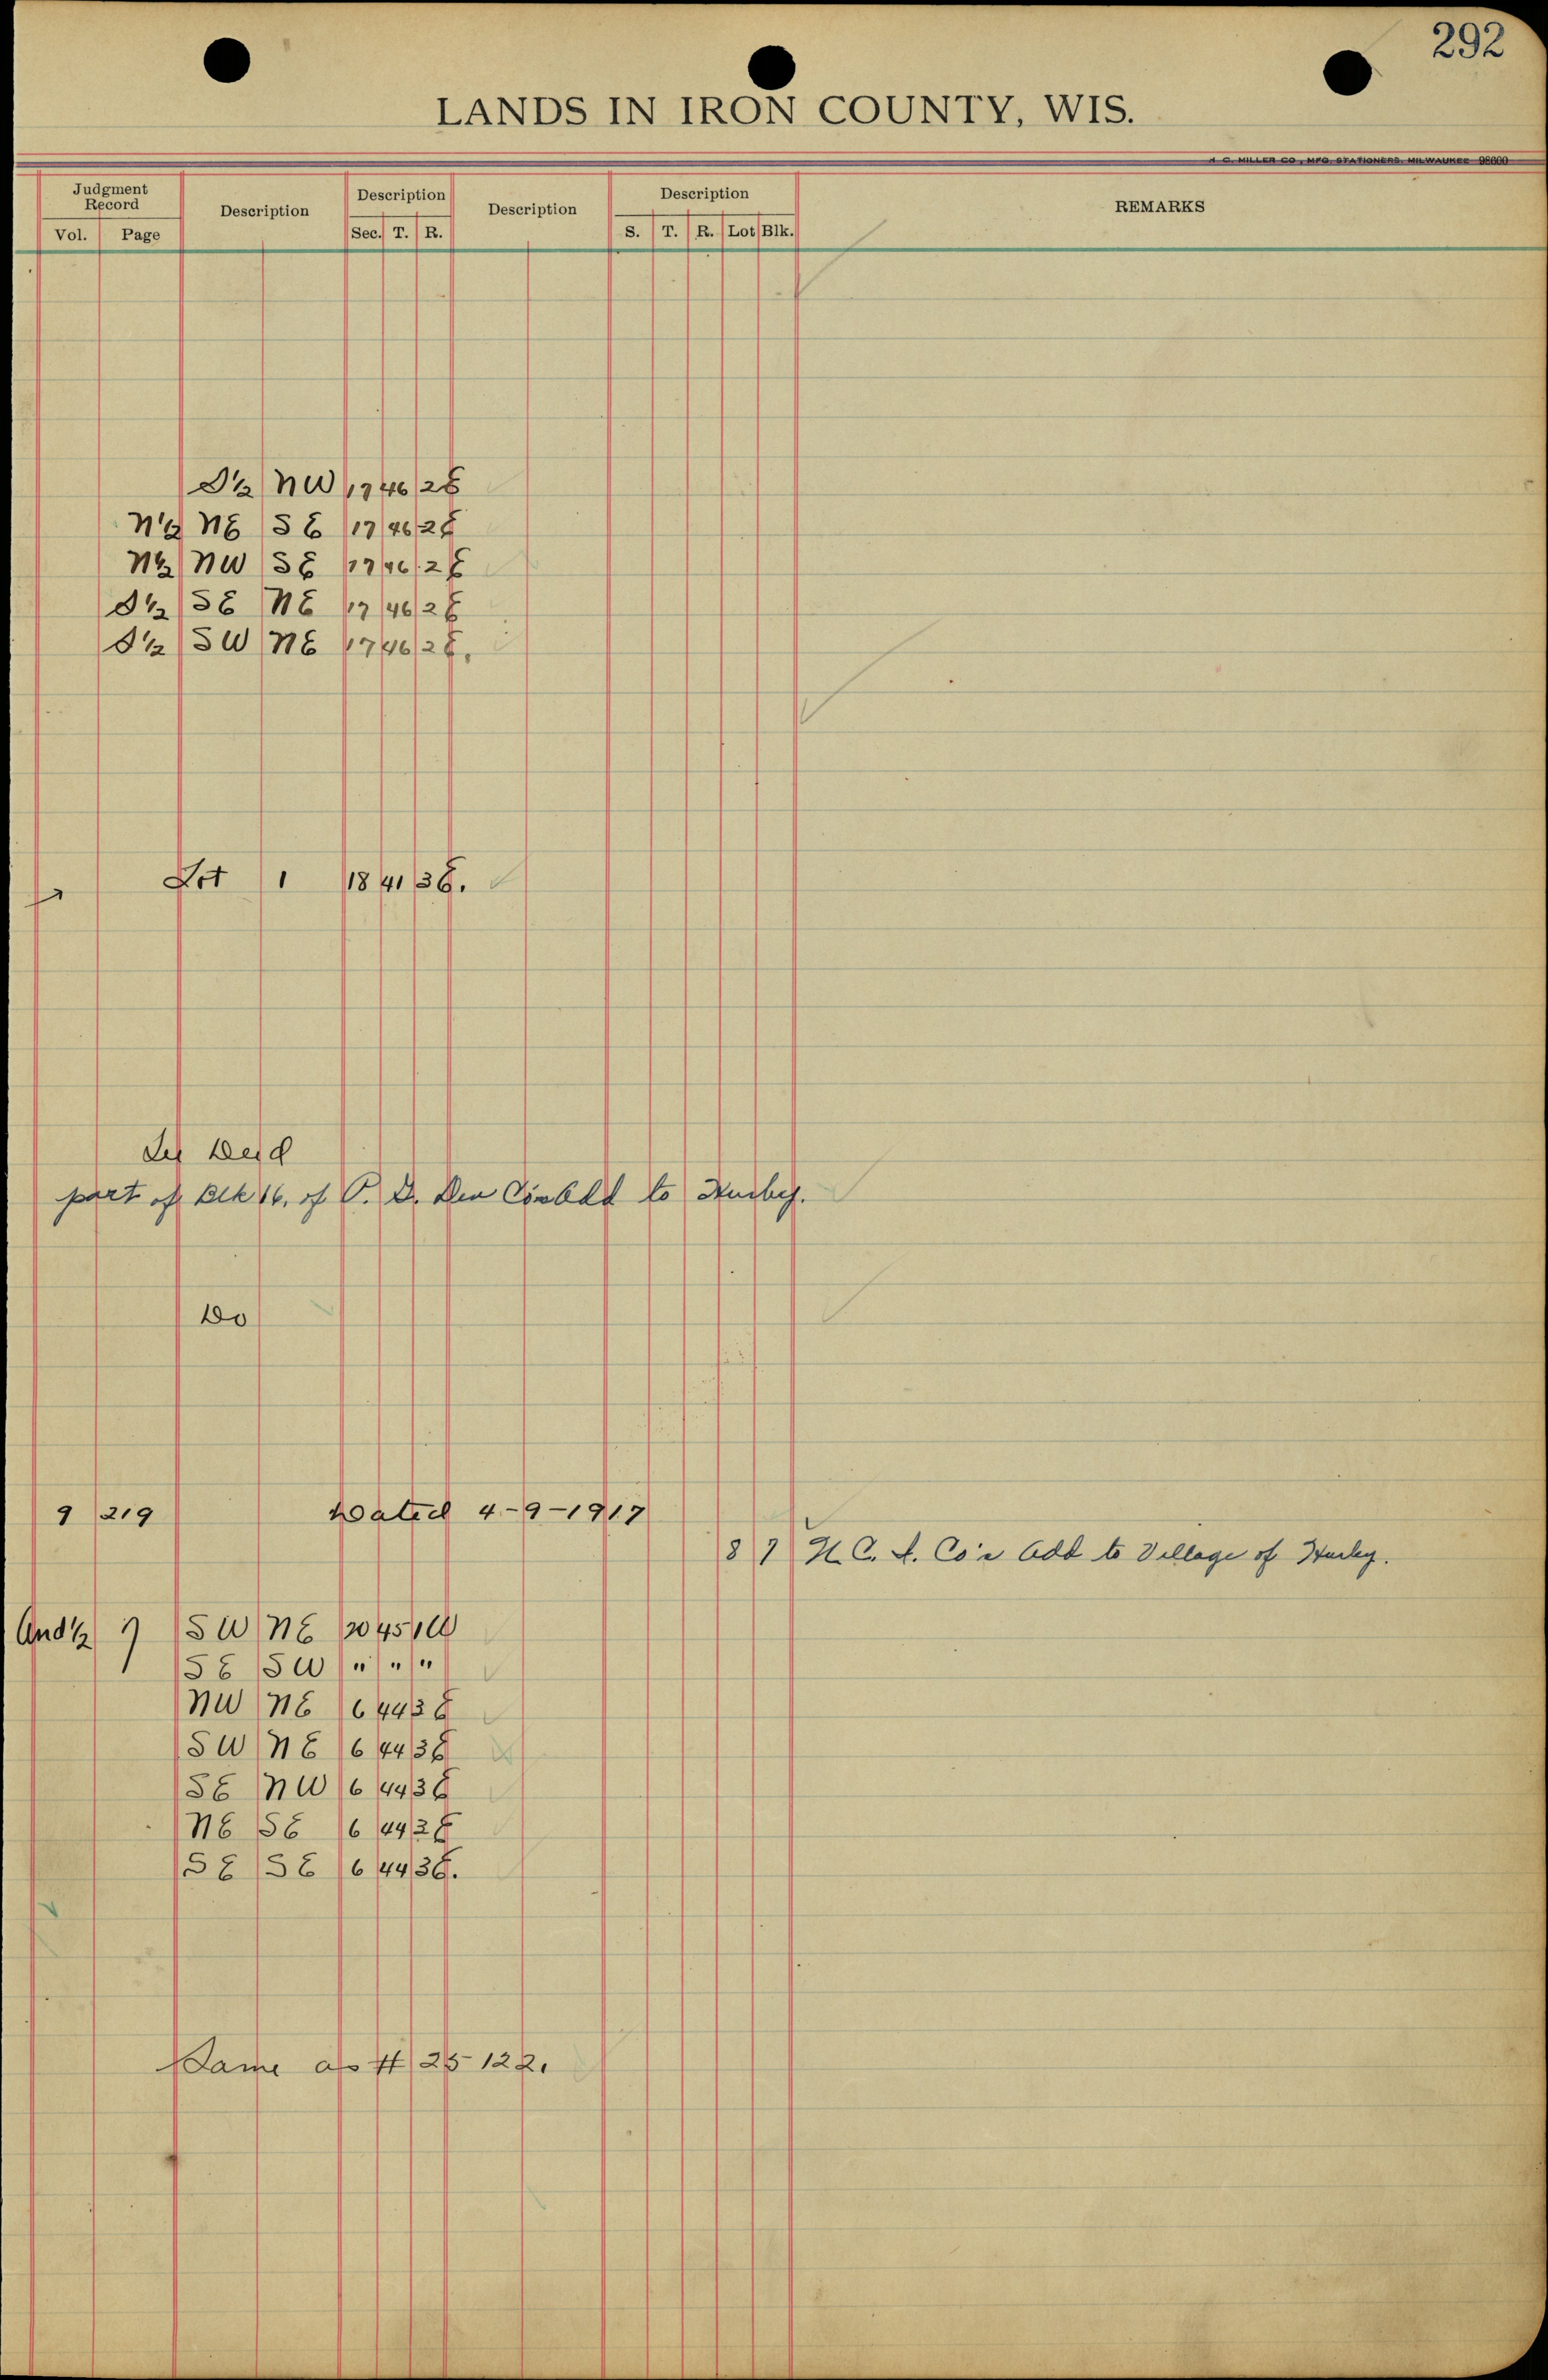 292
LANDS IN IRON COUNTY, WIS.
H. C. MILLER CO., MFG. STATIONERS, MILWAUKEE 98600
Judgment Record Description Description Description Description REMARKS
Vol. Page Sec. T. R. S. T. R. Lot Blk.
S½ NW 17 46 2E
N½ NE SE 17 46 2E
N½ NW SE 17 46 2E
S½ SE NE 17 46 2E
S½ SW NE 17 46 2E.
Lot 1 18 41 3E.
See Deed
part of Blk 16, of P. D. Add to Hurley.
Do
9 219 Dated 4-9-1917
8 7 N. C. L. Co's Add to Village of Hurley.
Und ½ of SW NE 20 45 1W
SE SW " " "
NW NE 6 44 3E
SW NE 6 44 3E
SE NW 6 44 3E
NE SE 6 44 3E
SE SE 6 44 3E.
Same as # 25122.